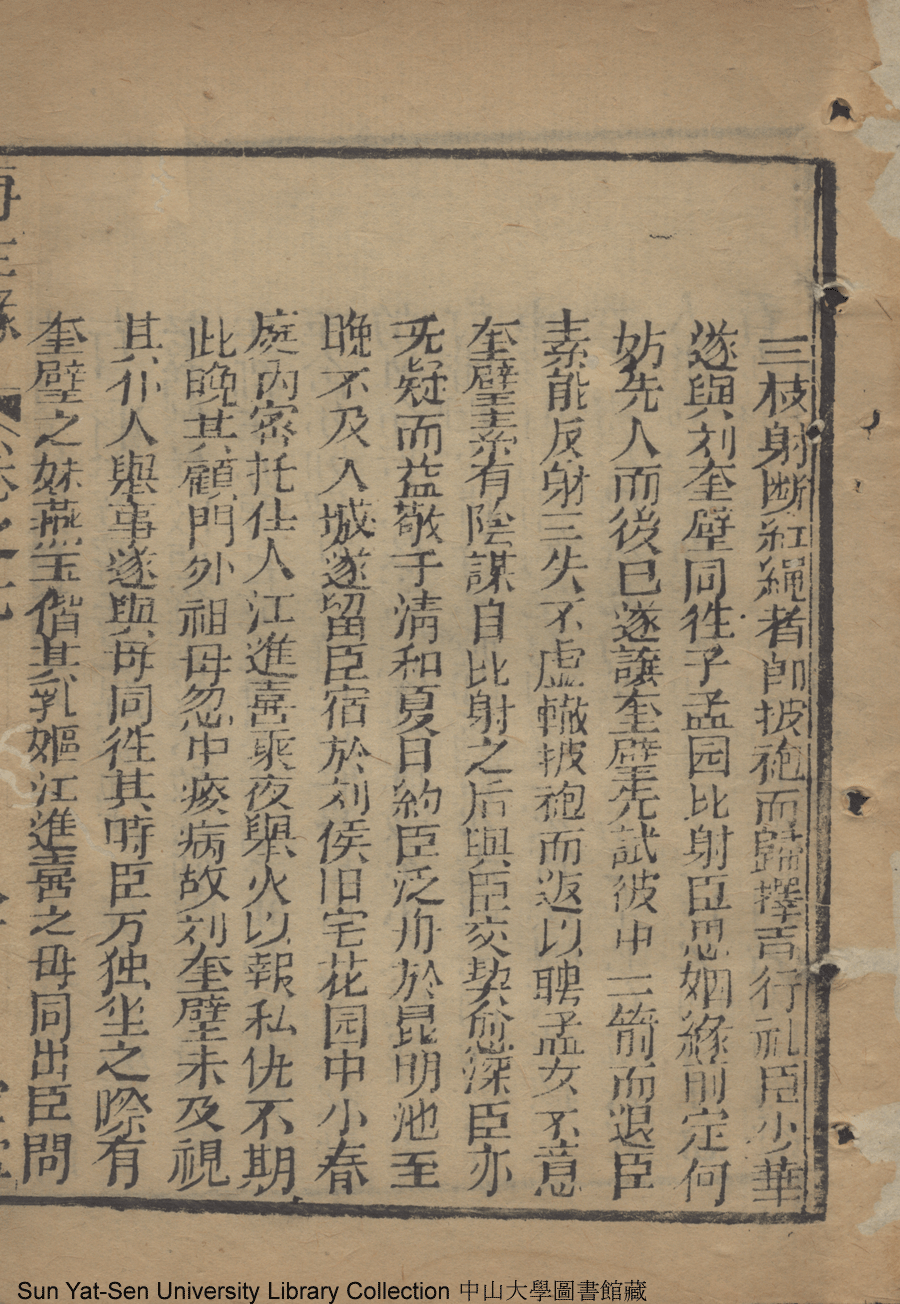 三枝射断紅繩者即披袍而歸擇吉行礼臣少華
遂與刘奎壁同徃于孟园比射臣思姻緣前定何
妨先人而後已遂讓奎壁先試彼中二箭而退臣
素能反射三矢不虚轍披袍而返以聘孟女不意
奎璧素有陰謀自比射之后與臣交契愈深臣亦
无疑而益敬于清和夏日約臣泛舟於昆明池至
晚不及入城遂留臣宿於刘侯旧宅花园中小春
庭内密托仕人江進喜乘夜舉火以報私仇不期
此晚其顧門外祖母忽中痰病故刘奎璧未及視
其仆人舉事遂與母同徃其時臣万独坐之際有
奎璧之妹燕玉偕其乳嫗江進喜之母同出臣問
再生緣
卷之
Sun Yat-Sen University Library Collection 中山大學圖書館藏